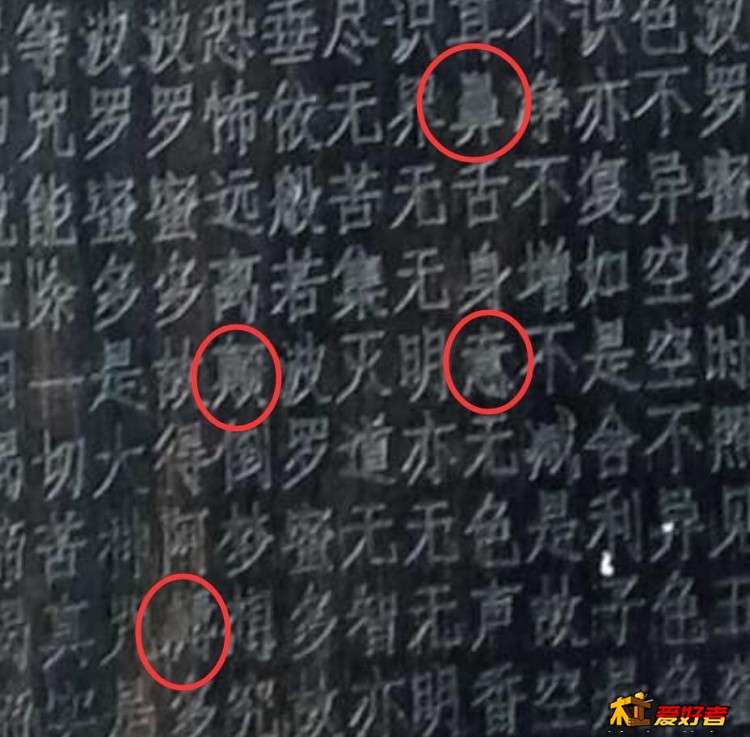 波罗蜜多时照见五
色不异空空不异色色
识亦复如是舍利子是
不净不增不减是故空
耳鼻舌身意无色声香
识界无无明亦无无明
尽无苦集灭道无智亦
垂依般若波罗蜜多故
恐怖远离颠倒梦想
波罗蜜多故得阿多
波罗蜜多是大神咒是
等咒能除一切苦真
杠爱好者